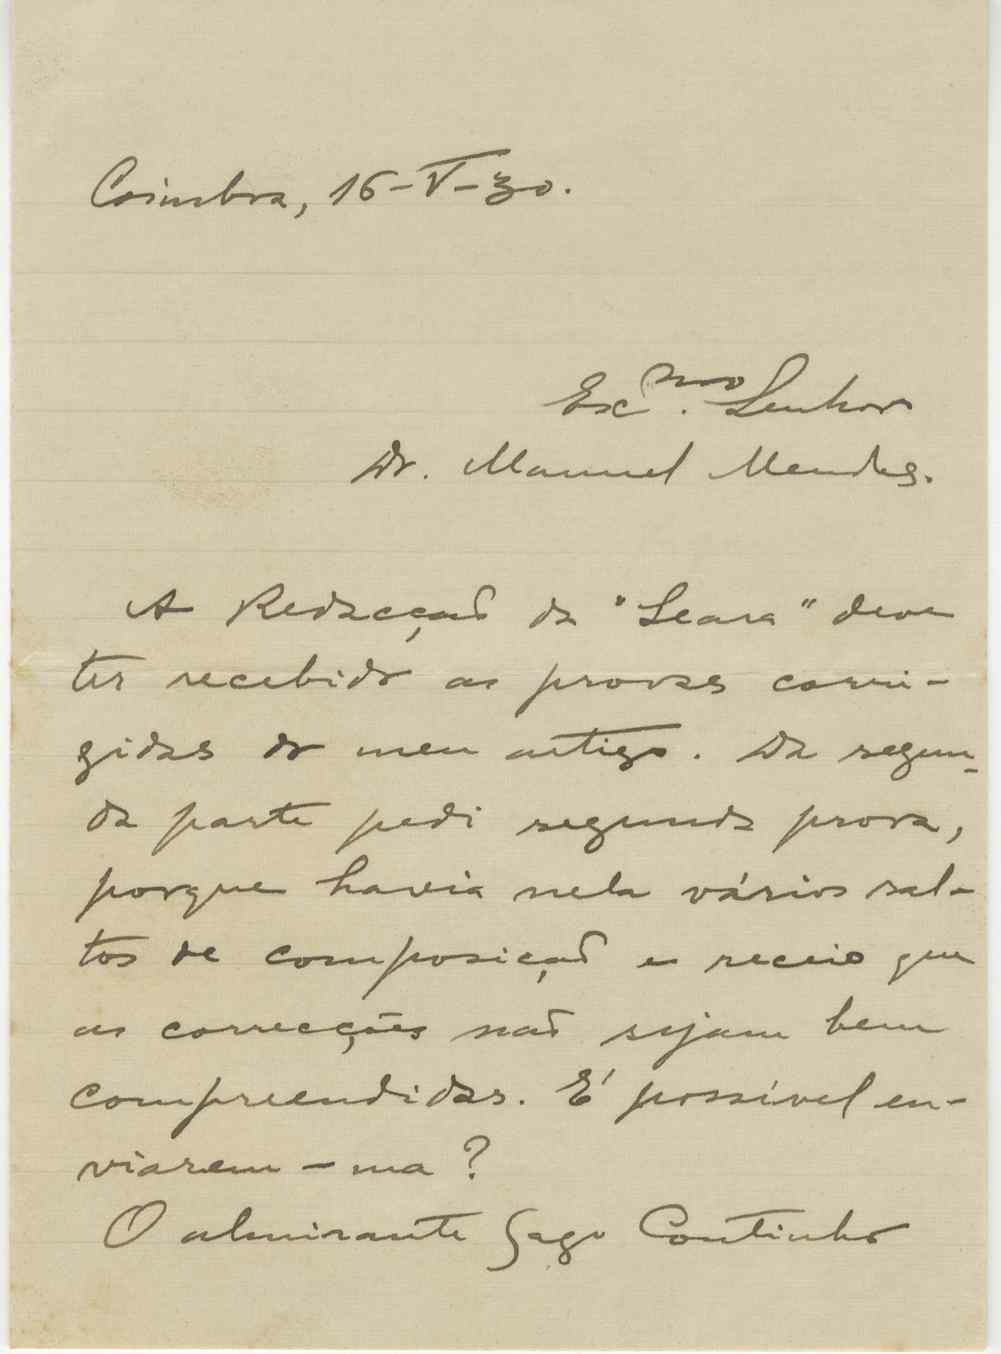 Coimbra, 16-V-30.
Exmo. Senhor
Dr. Manuel Mendes.
A Redacção da "Seara" deve
ter recebido as provas corri-
gidas do meu artigo. Da segun-
da parte pedi segunda prova,
porque havia nela vários sal-
tos de composição e receio que
as correcções não sejam bem
compreendidas. É possível en-
viarem-ma?
O almirante Gago Coutinho